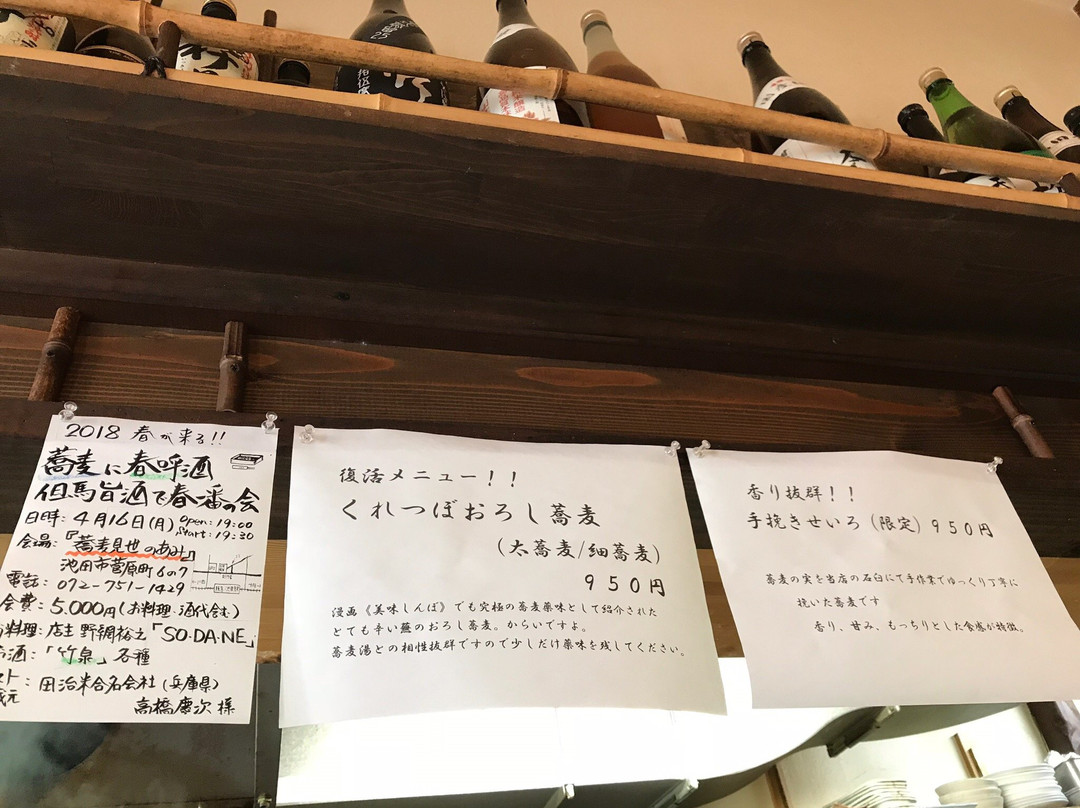 2018 春が来る!!
蕎麦に春呼酒
但馬旨酒で春一番の会
日時: 4月16日(月) Open: 19:00
Start: 19:30
会場:『蕎麦見世のあみ』
池田市菅原町6の7
電話: 072-751-1429
会費: 5,000円(お料理、酒代会)
料理: 店主 野網裕之「SO.DA.NE」
酒:「竹泉」各種
田治米合名会社(兵庫県)
高橋慶次様
復活メニュー!!
くれつぼおろし蕎麦
(太蕎麦/細蕎麦)
950円
漫画《美味しんぼ》でも究極の蕎麦薬味として紹介された
とても辛い蕪のおろし蕎麦。からいですよ。
蕎麦湯との相性抜群ですので少しだけ薬味を残してください。
香り抜群!!
手挽きせいろ(限定)950円
蕎麦の実を当店の石臼にて手作業でゆっくり丁寧に
挽いた蕎麦です
香り、甘み、もっちりとした食感が特徴。